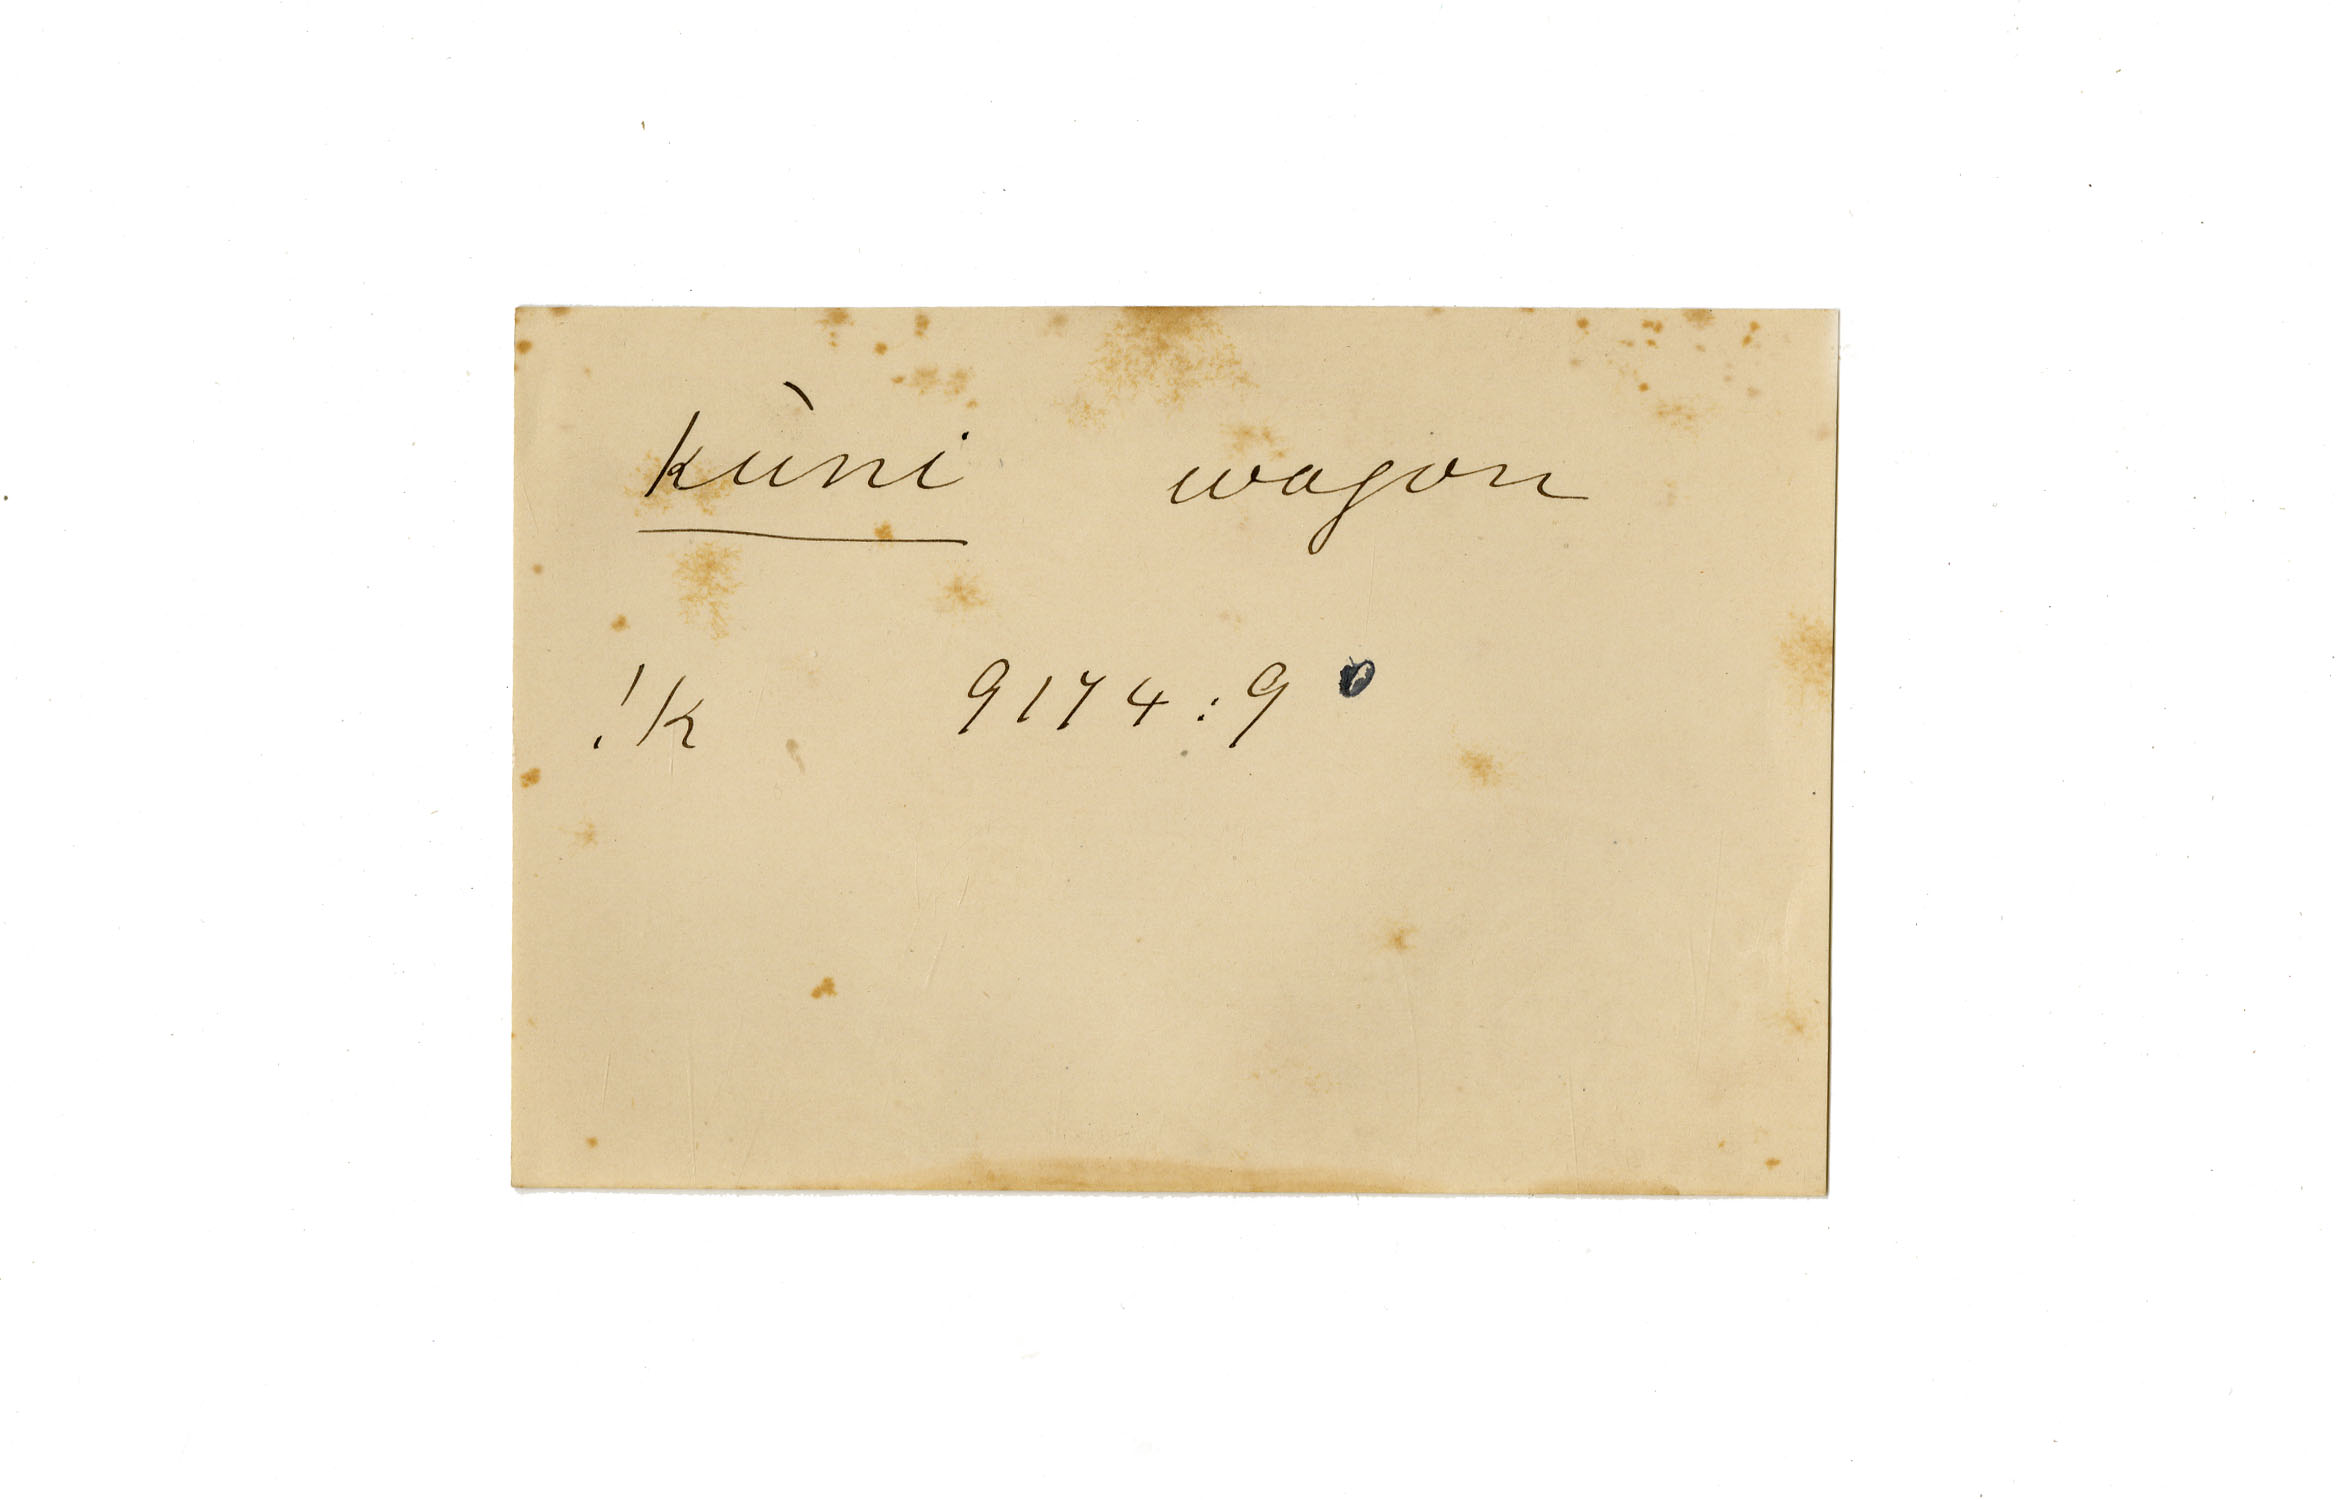 kùni wagon
!k 9174:9